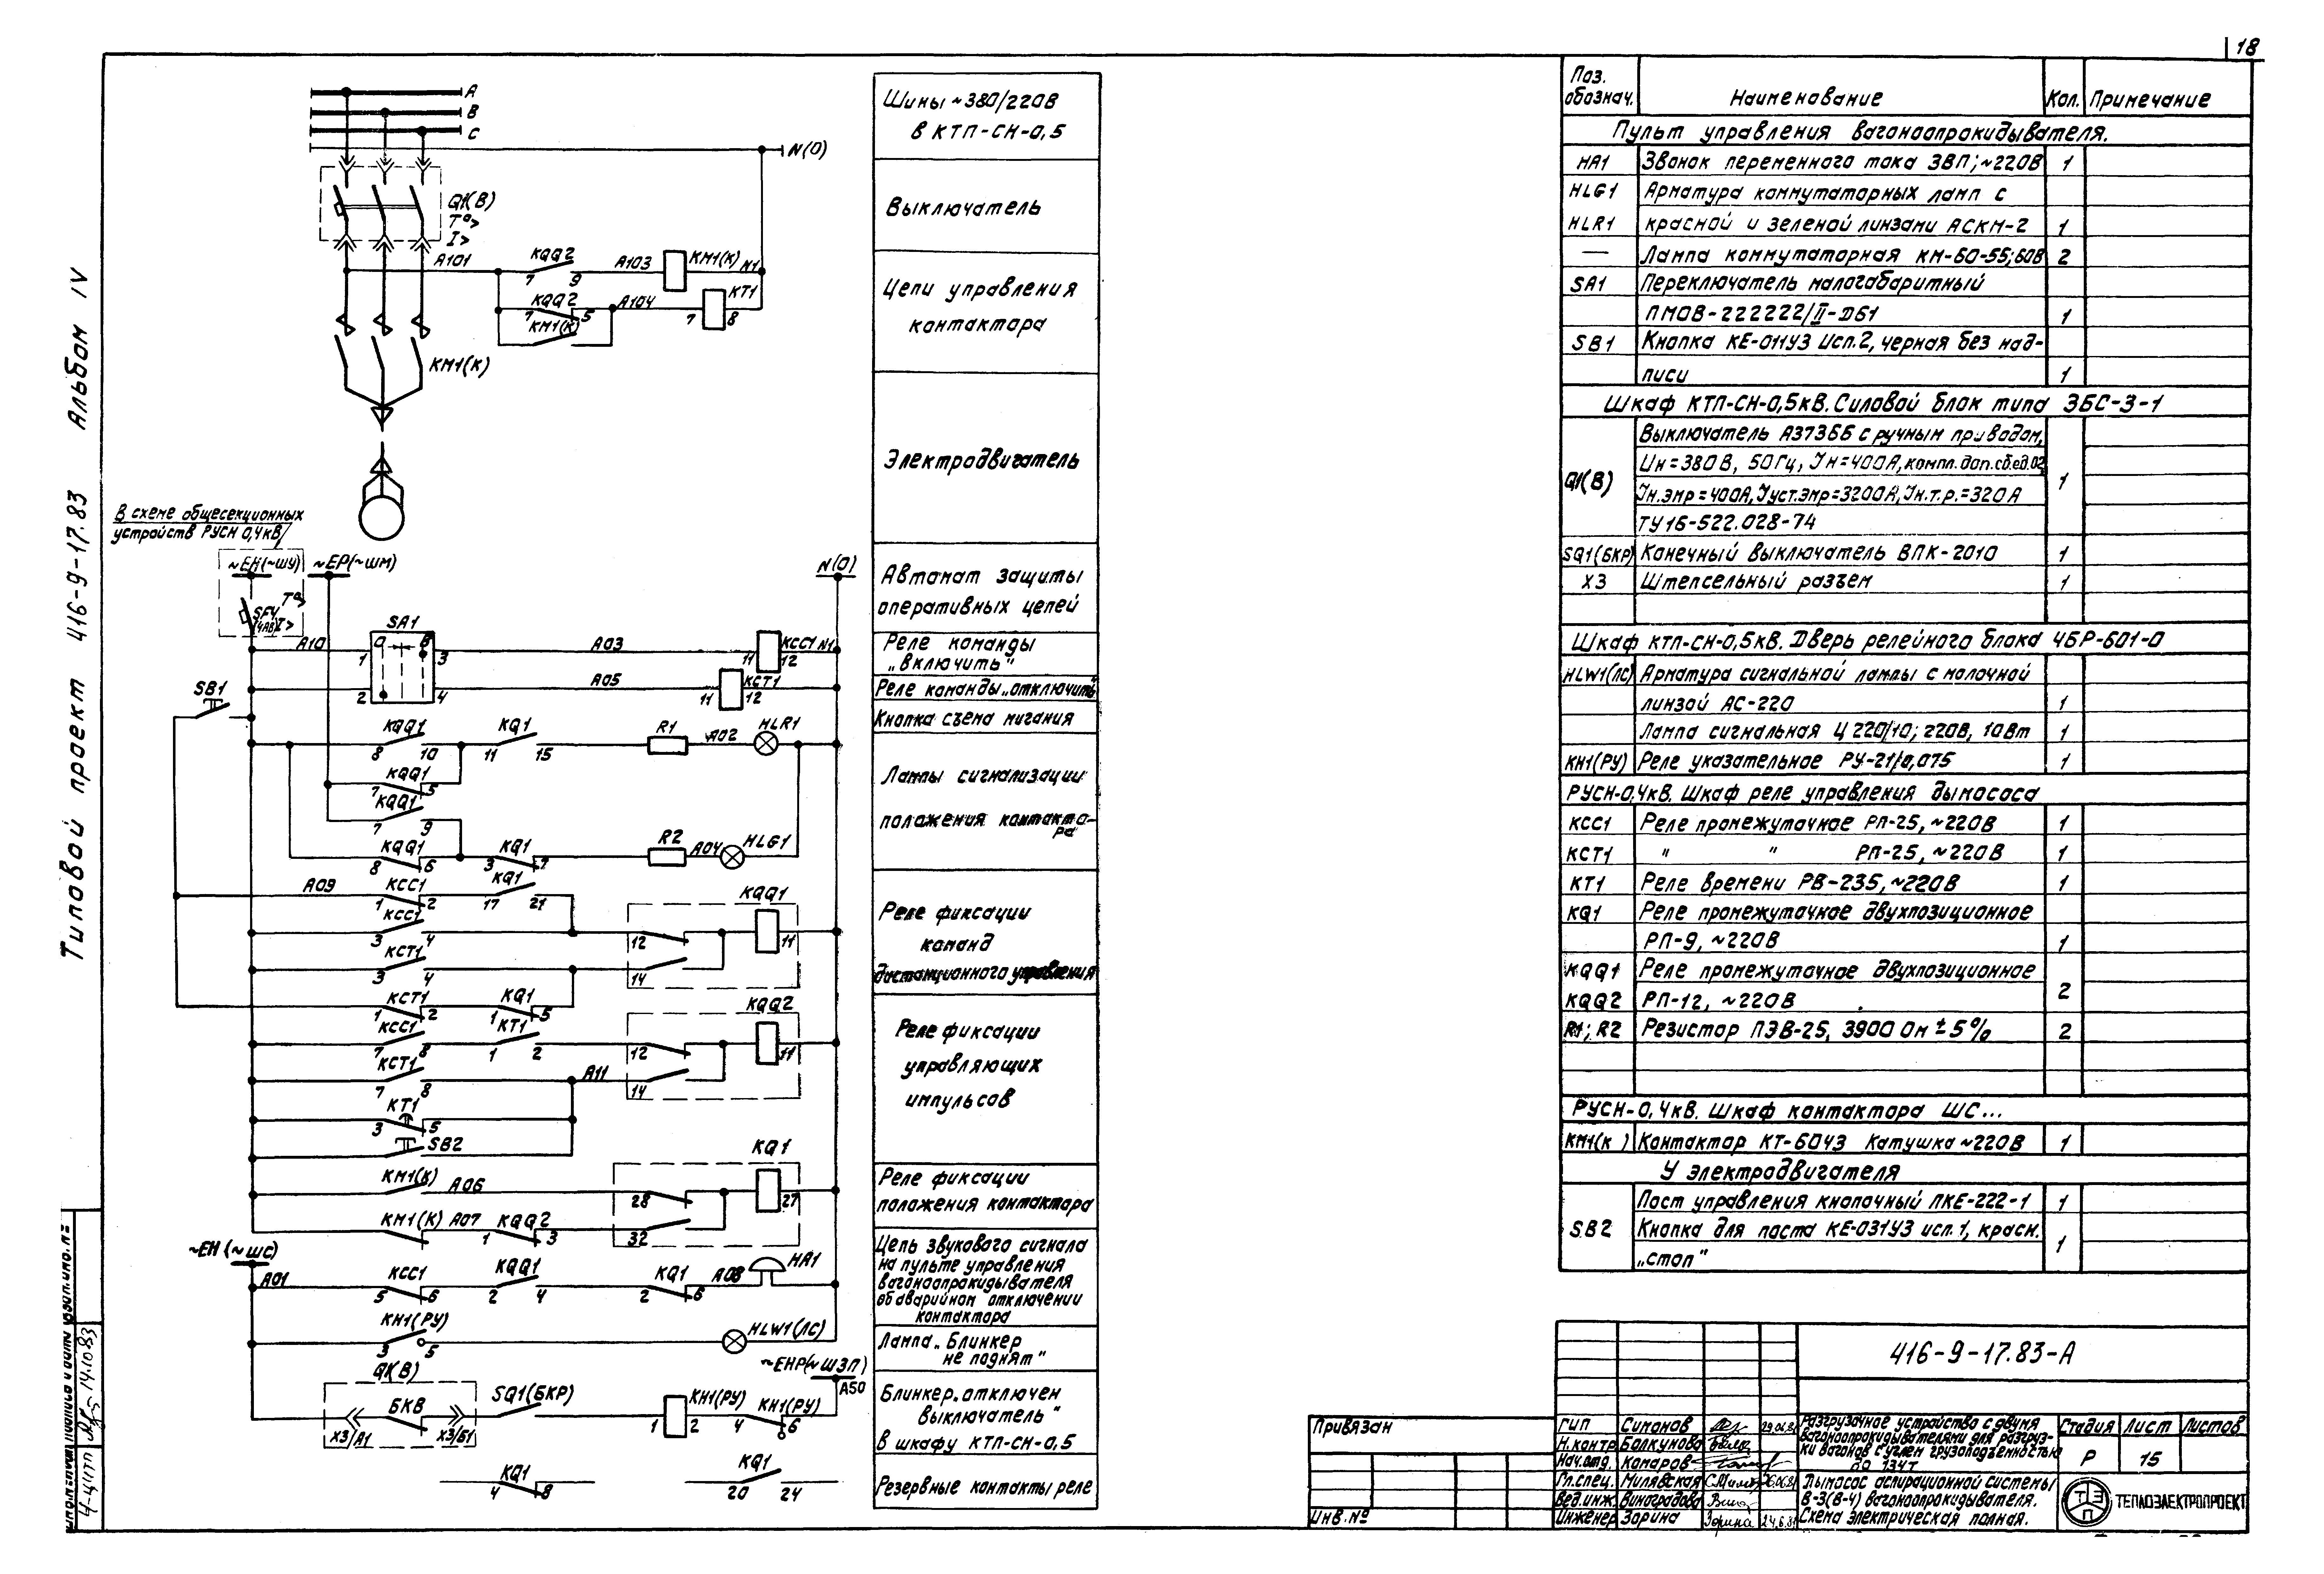 18
Типовой проект 416-9-17.83 Альбом IV
A
B
C
N(0)
Q1(В)
T°>
I>
A101
KQQ2
7 9
A103
KM1(К)
N1
KQQ2
7 5
A104
KT1
7 8
KM1(К)
KM1(К)
В схеме общесекционных
устройств РУСН 0,4кВ
~EH(~ШУ)
~EP(~ШМ)
N(0)
SF4
(4АВ)
T°>
I>
SA1
A10
O B
1 3
A03
KCC1
N1
11 12
2 4
A05
KCT1
11 12
SB1
KQQ1
8 10
KQ1
11 15
R1
A02
HLR1
KQQ1
7 5
KQQ1
7 9
KQQ1
8 6
KQ1
3 7
R2
A04
HLG1
A09
KCC1
1 2
KQ1
17 21
KCC1
3 4
KQQ1
12 11
KCT1
3 4
14
KCT1
1 2
KQ1
1 5
KCC1
7 8
KT1
1 2
KQQ2
12 11
KCT1
7 8
A11
14
KT1
3 5
SB2
KM1(К)
A06
KQ1
28 27
KM1(К)
A07
KQQ2
1 3
32
~EH(~ШС)
A01
KCC1
5 6
KQQ1
2 4
KQ1
2 6
A08
HA1
KH1(РУ)
3 5
HLW1(ЛС)
~EHP(~ШЗП)
A50
Q1(В)
БКВ
X3/A1
X3/Б1
SQ1(БКР)
KH1(РУ)
1 2
KH1(РУ)
4 6
KQ1
4 8
KQ1
20 24
Шины ~380/220В
в КТП-СН-0,5
Выключатель
Цепи управления
контактора
Электродвигатель
Автомат защиты
оперативных цепей
Реле команды
„включить"
Реле команды „отключить"
Кнопка съема мигания
Лампы сигнализации
положения контакто-
ра
Реле фиксации
команд
дистанционного управления
Реле фиксации
управляющих
импульсов
Реле фиксации
положения контактора
Цепь звукового сигнала
на пульте управления
вагоноопрокидывателя
об аварийном отключении
контактора
Лампа „Блинкер
не поднят"
Блинкер „отключен
выключатель"
в шкафу КТП-СН-0,5
Резервные контакты реле
Поз. обознач. Наименование Кол. Примечание
Пульт управления вагоноопрокидывателя.
HA1 Звонок переменного тока ЗВП; ~220В 1
HLG1 Арматура коммутаторных ламп с
HLR1 красной и зеленой линзами АСКМ-2 1
— Лампа коммутаторная КМ-60-55; 60В 2
SA1 Переключатель малогабаритный
ПМОВ-222222/II-Д61 1
SB1 Кнопка КЕ-011У3 Исп.2, черная без над-
писи 1
Шкаф КТП-СН-0,5кВ. Силовой блок типа ЗБС-3-1
Выключатель А3736Б с ручным приводом,
Q1(В) Uн=380В, 50Гц, Iн=400А, компл. доп. сб.ед.02 1
Iн.эмр=400А, Iуст.эмр=3200А, Iн.т.р.=320А
ТУ16-522.028-74
SQ1(БКР) Конечный выключатель ВПК-2010 1
X3 Штепсельный разъем 1
Шкаф КТП-СН-0,5кВ. Дверь релейного блока ЧБР-601-0
HLW1(ЛС) Арматура сигнальной лампы с молочной
линзой АС-220 1
Лампа сигнальная Ц 220/10; 220В, 10Вт 1
KH1(РУ) Реле указательное РУ-21/0,075 1
РУСН-0,4кВ. Шкаф реле управления дымососа
KCC1 Реле промежуточное РП-25, ~220В 1
KCT1 " " РП-25, ~220В 1
KT1 Реле времени РВ-235, ~220В 1
KQ1 Реле промежуточное двухпозиционное
РП-9, ~220В 1
KQQ1 Реле промежуточное двухпозиционное
KQQ2 РП-12, ~220В 2
R1; R2 Резистор ПЭВ-25, 3900 Ом ±5% 2
РУСН-0,4кВ. Шкаф контактора ШС...
KM1(К ) Контактор КТ-6043 Катушка ~220В 1
У электродвигателя
Пост управления кнопочный ПКЕ-222-1 1
SB2 Кнопка для поста КЕ-031У3 исп.1, красн. 1
„стоп"
416-9-17.83-А
Привязан
Инв.№
ГИП Симонов 29.06.81
Н.контр Балкунова
Нач.отд. Комаров
Гл.спец. Милявская 26.06.81
Вед.инж. Виноградова
Инженер Зорина 24.6.81
Разгрузочное устройство с двумя
вагоноопрокидывателями для разгруз-
ки вагонов с углем грузоподъемностью
до 134т
Стадия Лист Листов
Р 15
Дымосос аспирационной системы
В-3(В-4) вагоноопрокидывателя.
Схема электрическая полная.
ТЭП
ТЕПЛОЭЛЕКТРОПРОЕКТ
14.10.83